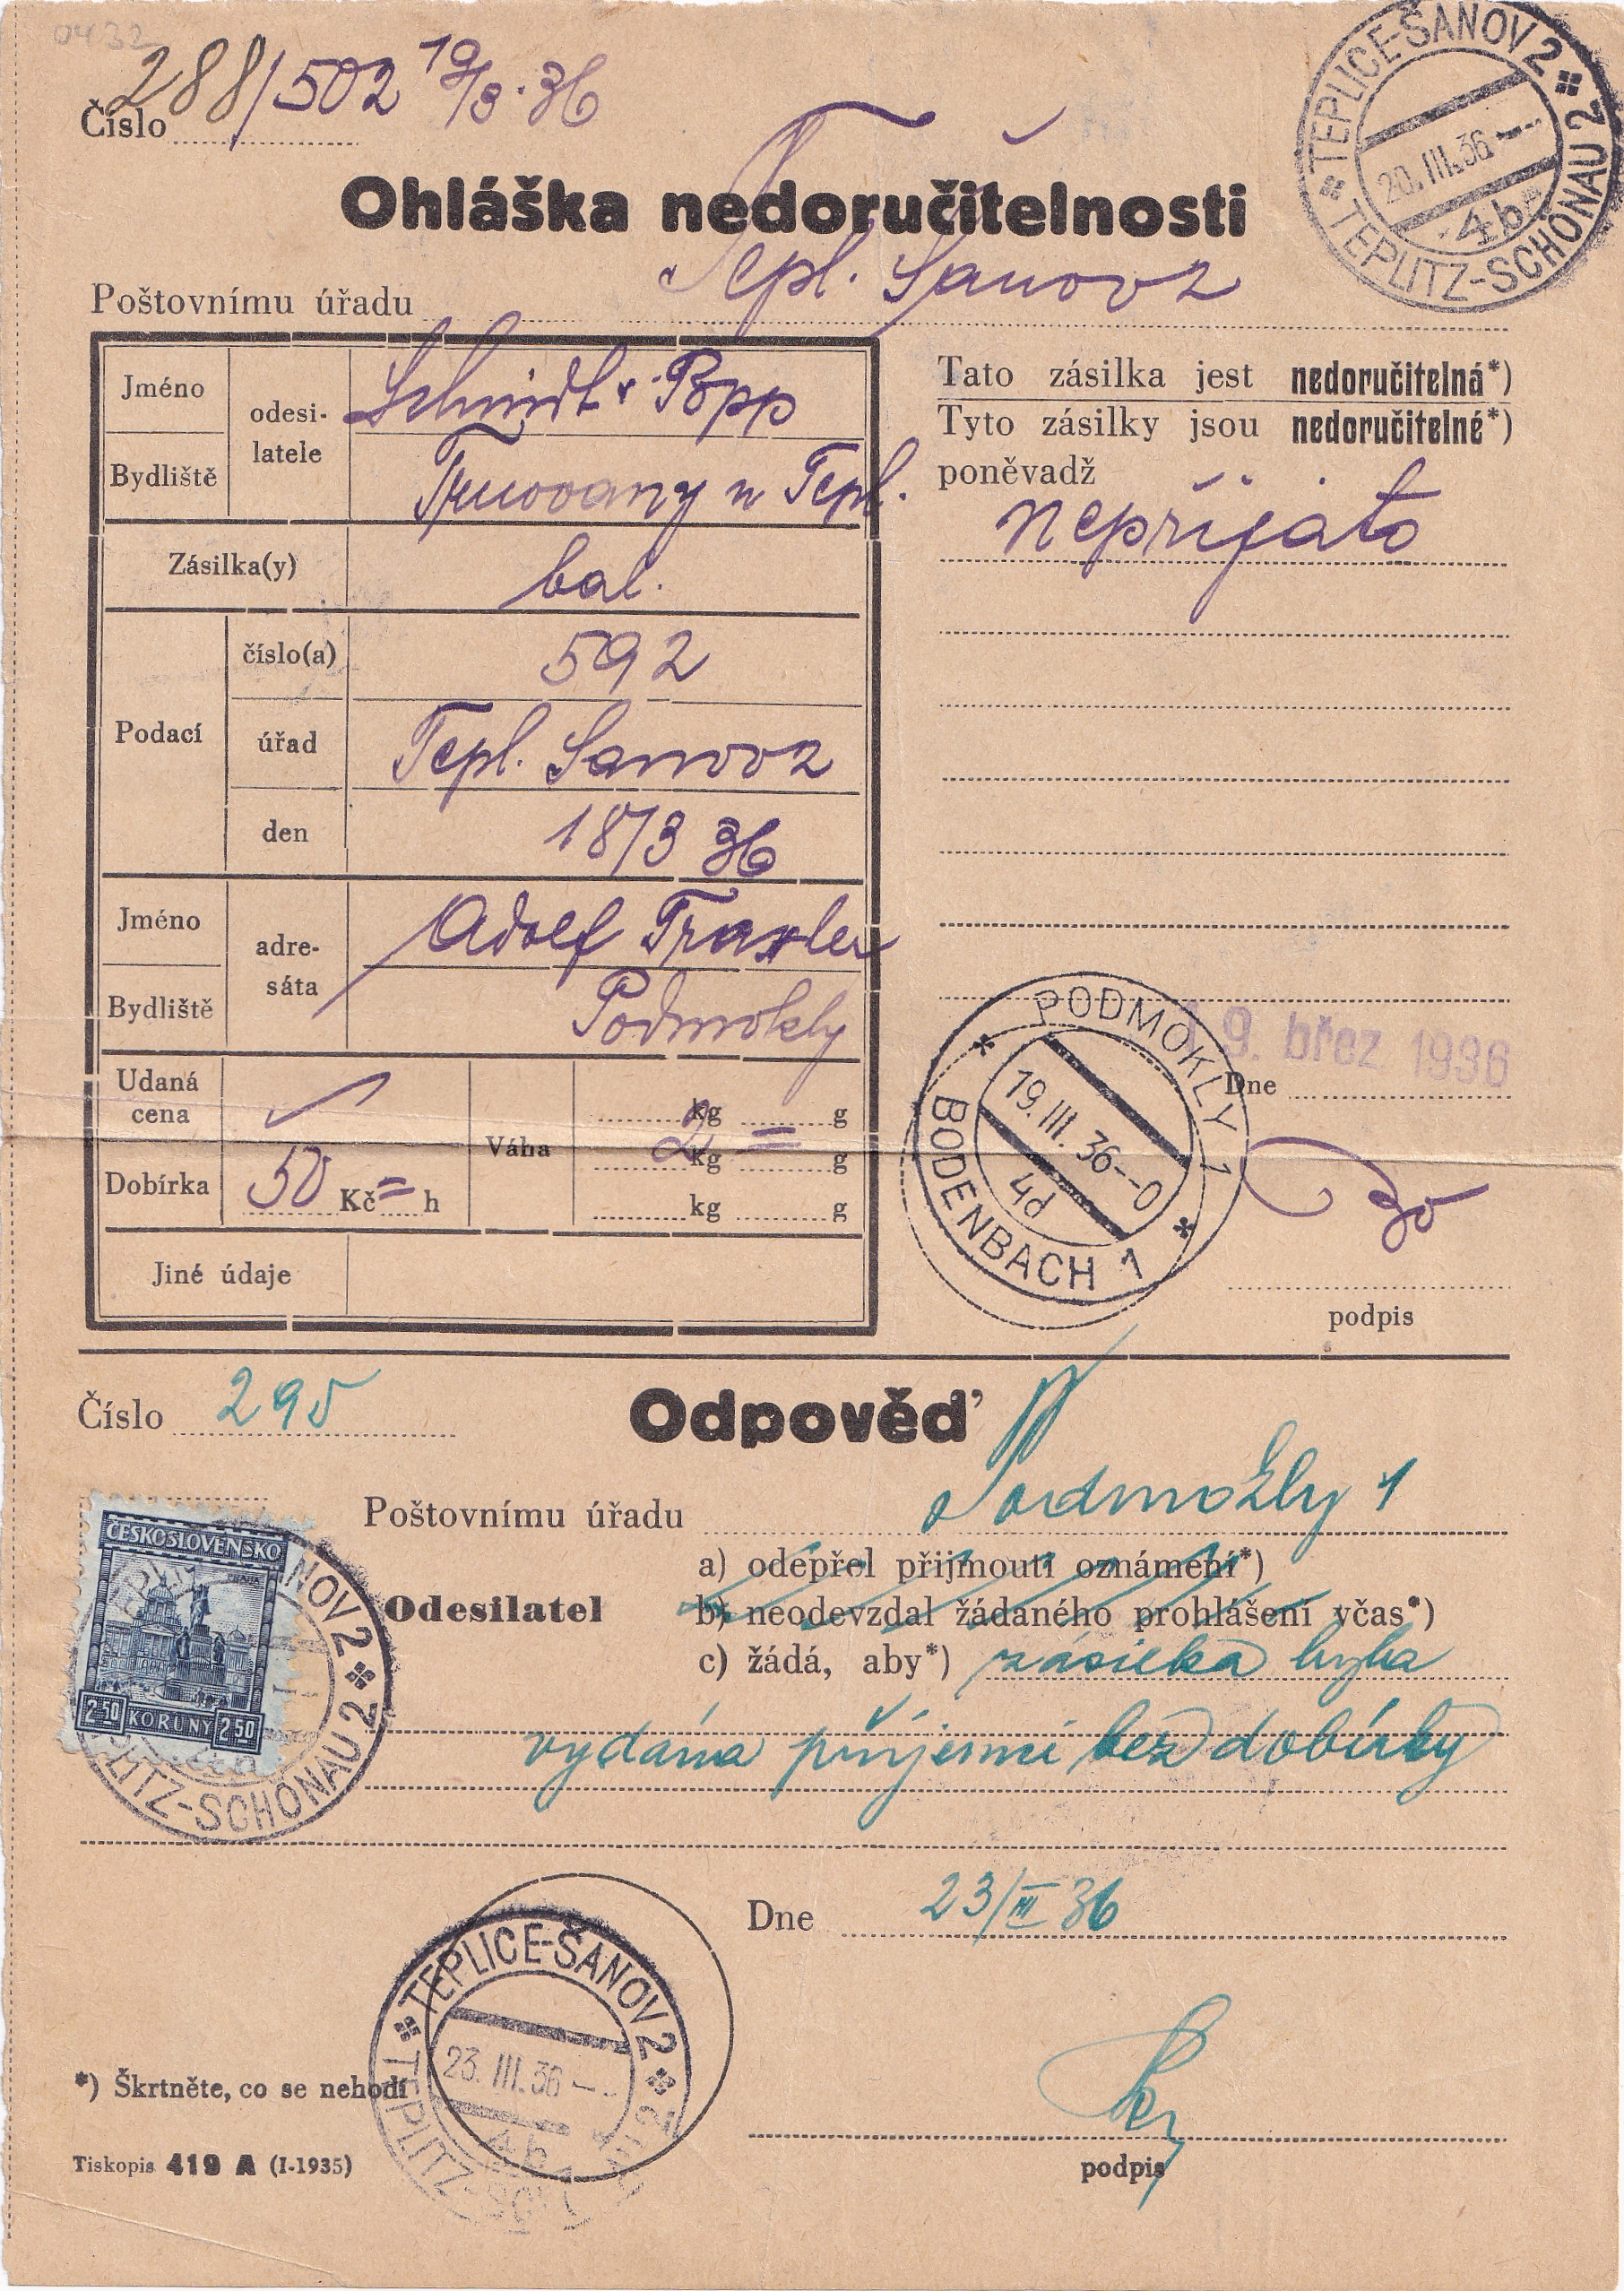 0432
Číslo 288/502 19/3.36
Ohláška nedoručitelnosti
Poštovnímu úřadu Tepl. Šanov 2
TEPLICE-ŠANOV 2
20.III.36
4b
TEPLITZ-SCHÖNAU 2
Jméno
Bydliště
odesi-
latele
Schmidt Popp
Trnovany u Tepl.
Zásilka(y) bal.
Podací
číslo(a) 592
úřad Tepl. Sanov 2
den 18/3 36
Jméno
Bydliště
adre-
sáta
Adolf Traxler
Podmokly
Udaná
cena
Dobírka 50 Kč = h
Váha
kg g
2 kg = g
kg g
Jiné údaje
Tato zásilka jest nedoručitelná*)
Tyto zásilky jsou nedoručitelné*)
poněvadž
nepřijato
19. břez 1936
Dne
PODMOKLY 1
19.III.36--0
4d
BODENBACH 1
podpis
Číslo 295
Odpověď
Poštovnímu úřadu Podmokly 1
Odesilatel
a) odepřel přijmouti oznámení*)
b) neodevzdal žádaného prohlášení včas*)
c) žádá, aby*) zásilka byla
vydána příjemci bez dobírky
ČESKOSLOVENSKO
PRAHA
2·50 KORUNY 2·50
NOV 2
PLITZ-SCHÖNAU 2
Dne 23/III 36
TEPLICE-ŠANOV 2
23.III.36
4b
TEPLITZ-SCH
*) Škrtněte, co se nehodí
Tiskopis 419 A (I-1935)
podpis